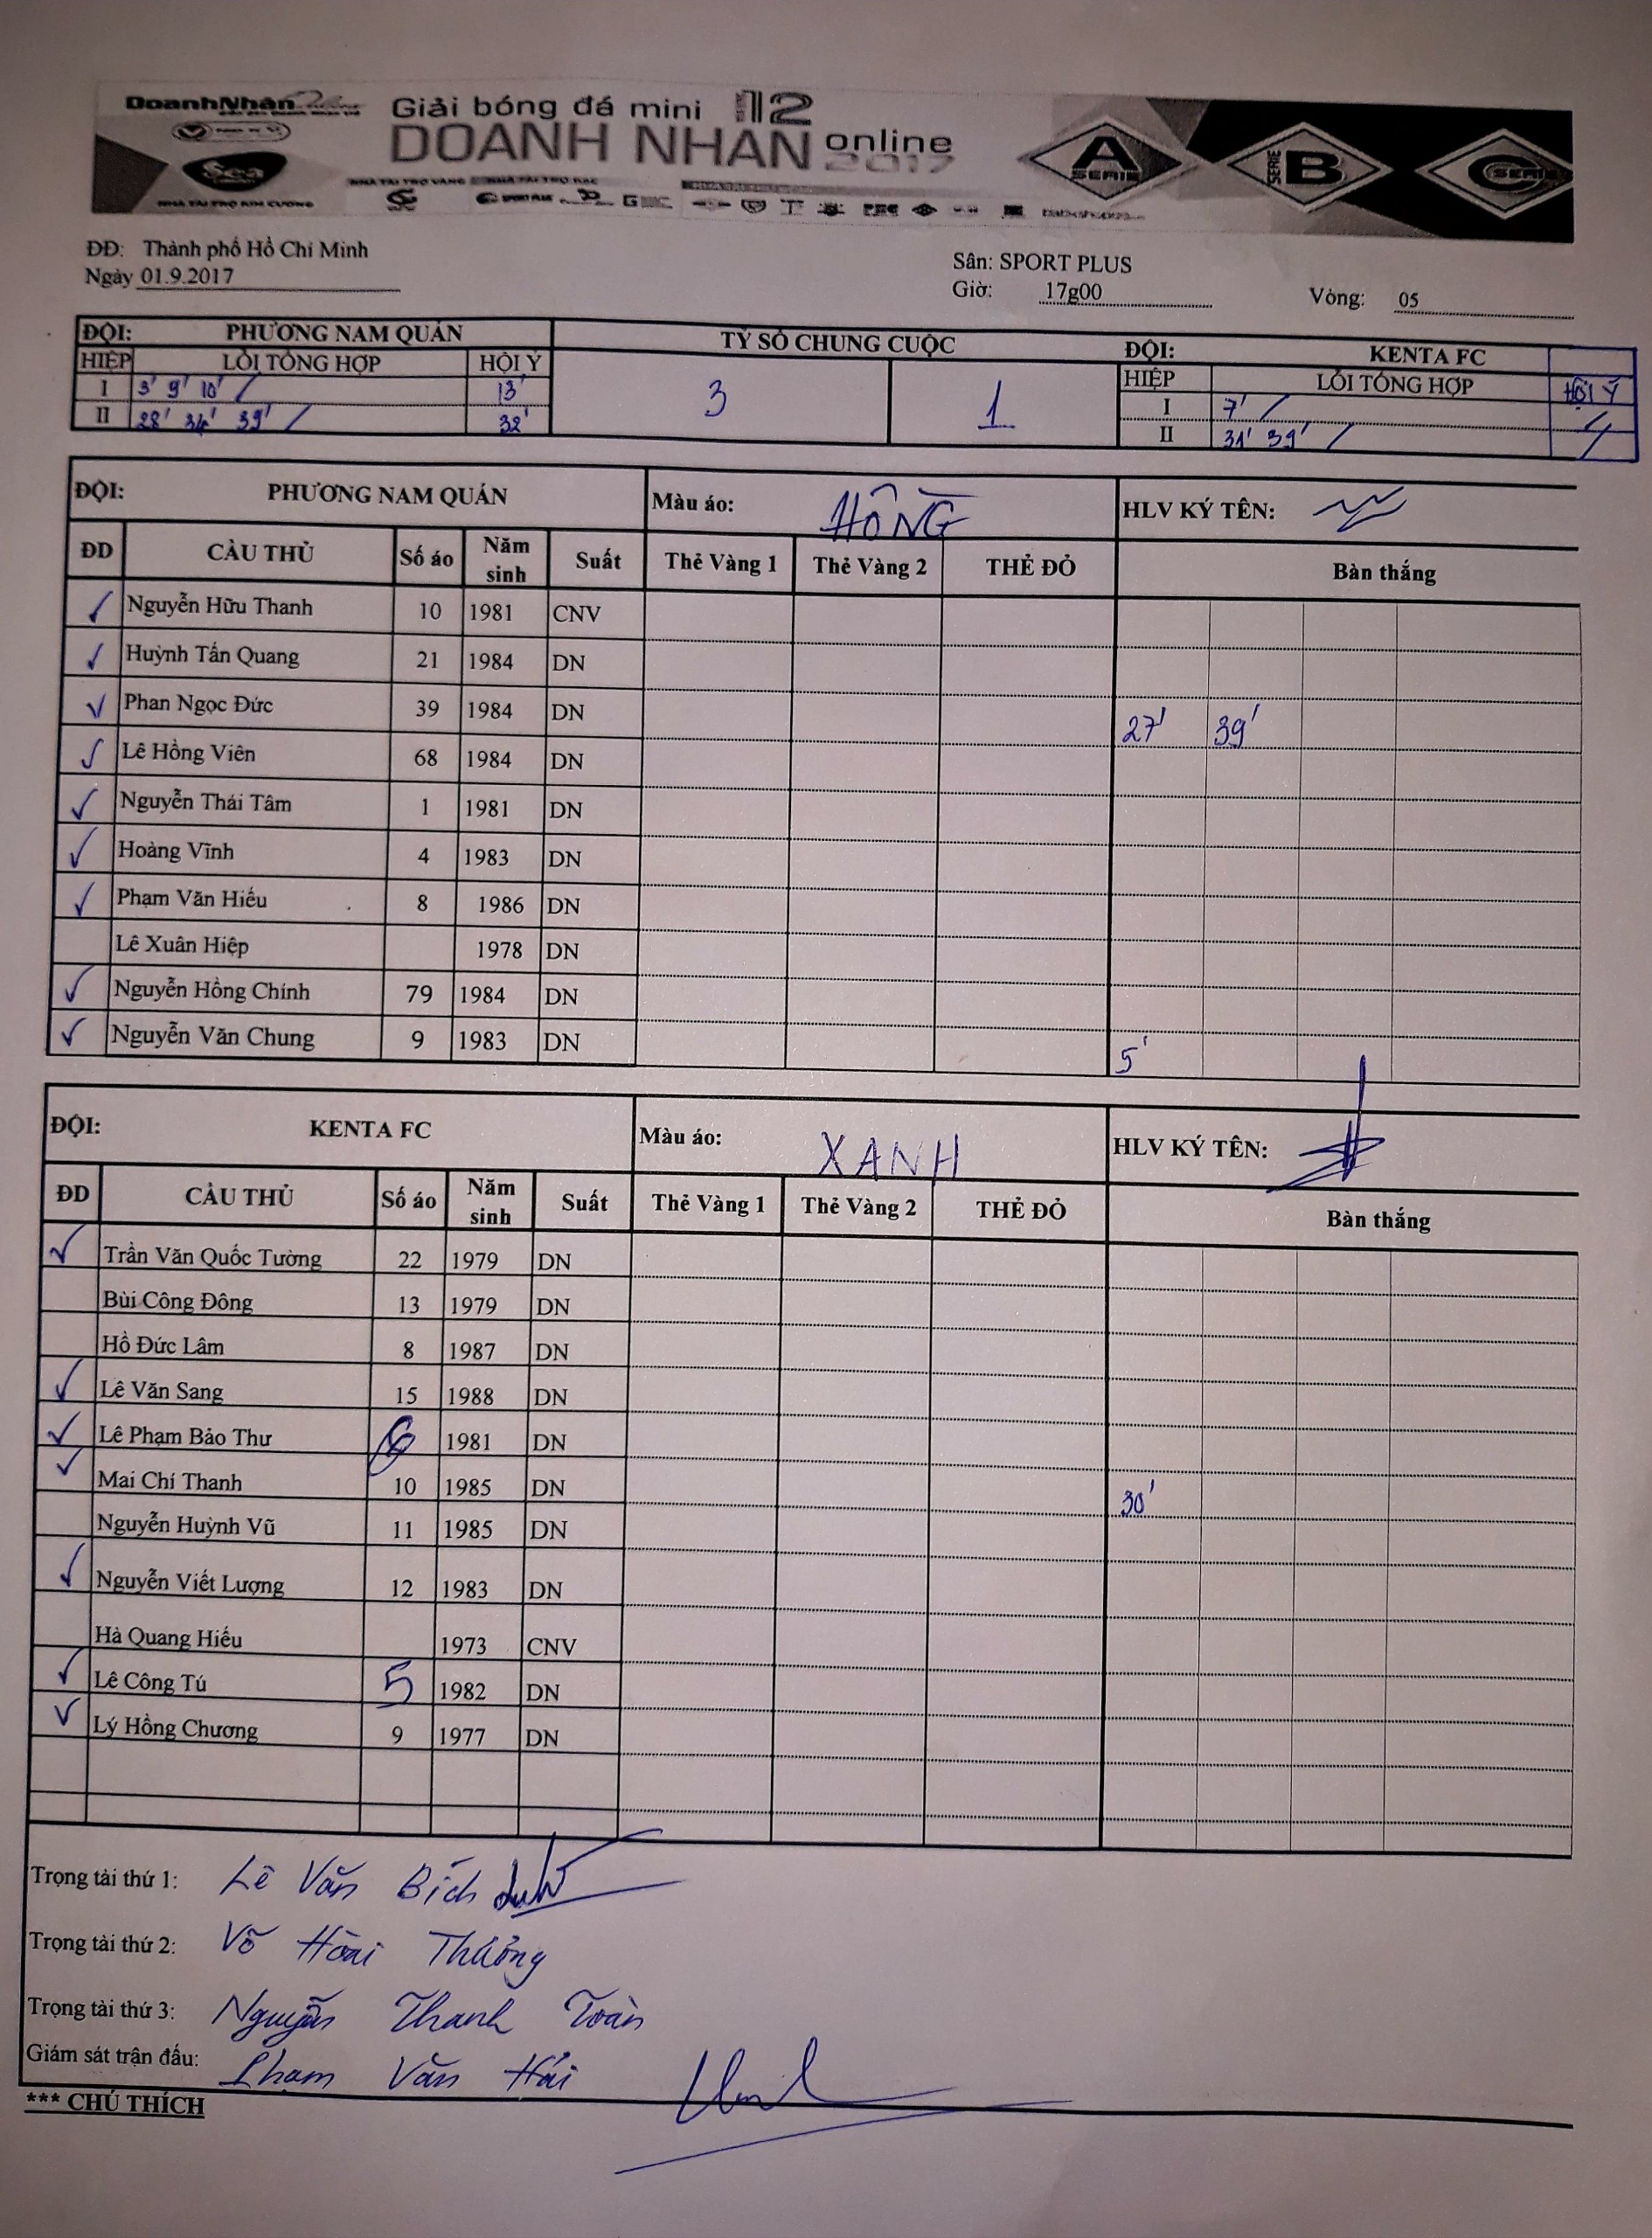 DoanhNhân
Giải bóng đá mini 12
DOANH NHÂN online
2017
Sea
NHÀ TÀI TRỢ KIM CƯƠNG
NHÀ TÀI TRỢ VÀNG NHÀ TÀI TRỢ BẠC
SPORT PLUS
A SERIE
SERIE B
C SERIE
ĐĐ: Thành phố Hồ Chí Minh
Ngày 01.9.2017
Sân: SPORT PLUS
Giờ: 17g00 Vòng: 05
ĐỘI: PHƯƠNG NAM QUÁN TỶ SỐ CHUNG CUỘC ĐỘI: KENTA FC
HIỆP LỖI TỔNG HỢP HỘI Ý 3 1 HIỆP LỖI TỔNG HỢP HỘI Ý
I 3' 9' 10' / 13' I 7' /
II 28' 34' 39' / 32' II 31' 39' /
ĐỘI: PHƯƠNG NAM QUÁN Màu áo: HỒNG HLV KÝ TÊN:
ĐD CẦU THỦ Số áo Năm sinh Suất Thẻ Vàng 1 Thẻ Vàng 2 THẺ ĐỎ Bàn thắng
✓ Nguyễn Hữu Thanh 10 1981 CNV
✓ Huỳnh Tấn Quang 21 1984 DN
✓ Phan Ngọc Đức 39 1984 DN 27' 39'
✓ Lê Hồng Viên 68 1984 DN
✓ Nguyễn Thái Tâm 1 1981 DN
✓ Hoàng Vĩnh 4 1983 DN
✓ Phạm Văn Hiếu 8 1986 DN
Lê Xuân Hiệp 1978 DN
✓ Nguyễn Hồng Chính 79 1984 DN
✓ Nguyễn Văn Chung 9 1983 DN 5'
ĐỘI: KENTA FC Màu áo: XANH HLV KÝ TÊN:
ĐD CẦU THỦ Số áo Năm sinh Suất Thẻ Vàng 1 Thẻ Vàng 2 THẺ ĐỎ Bàn thắng
✓ Trần Văn Quốc Tường 22 1979 DN
Bùi Công Đông 13 1979 DN
Hồ Đức Lâm 8 1987 DN
✓ Lê Văn Sang 15 1988 DN
✓ Lê Phạm Bảo Thư 1981 DN
✓ Mai Chí Thanh 10 1985 DN 30'
Nguyễn Huỳnh Vũ 11 1985 DN
✓ Nguyễn Viết Lượng 12 1983 DN
Hà Quang Hiếu 1973 CNV
✓ Lê Công Tú 5 1982 DN
✓ Lý Hồng Chương 9 1977 DN
Trọng tài thứ 1: Lê Văn Bích
Trọng tài thứ 2: Võ Hoài Thưởng
Trọng tài thứ 3: Nguyễn Thanh Toàn
Giám sát trận đấu: Phạm Văn Hải
*** CHÚ THÍCH